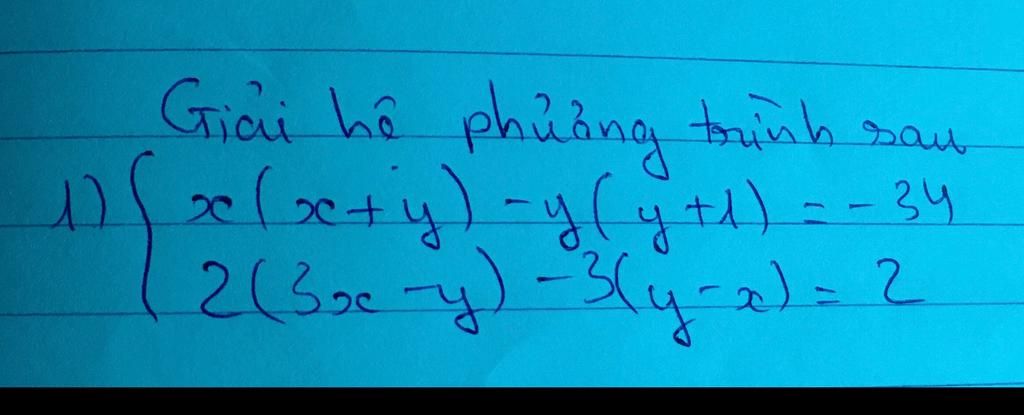 Giải hệ phương trình sau
1) { x(x+y) - y(y+1) = -34
2(3x-y) - 3(y-x) = 2